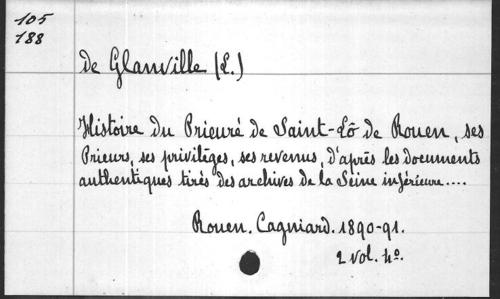 105
188
de Glanville (L.)
Histoire du Prieuré de Saint-Lô de Rouen, ses
Prieurs, ses privilèges, ses revenus, d'après les documents
authentiques tirés des archives de la Seine inférieure....
Rouen. Cagniard. 1890-91.
2 vol. 4º.